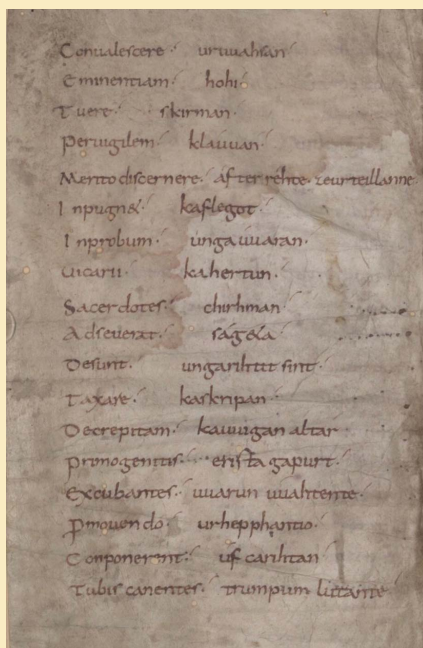 Conualescere uruuahsan
Eminentiam hohi
Tuere skirman
Peruigilem klauuan
Merito discernere after rehte zeurteillanne
Inpugn& kaflegot
Inprobum ungauuaran
Uicarii kahertun
Sacerdotes chirhman
Adseuerat sag&a
Desunt sint
Taxare kaskripan
Decrepitam altar
Primogenitis erista gapurt
Excubantes uuarun uuahtente
Pmouendo urhepphantio
Conponerent uf carihtan
Tubis canentes trumpum